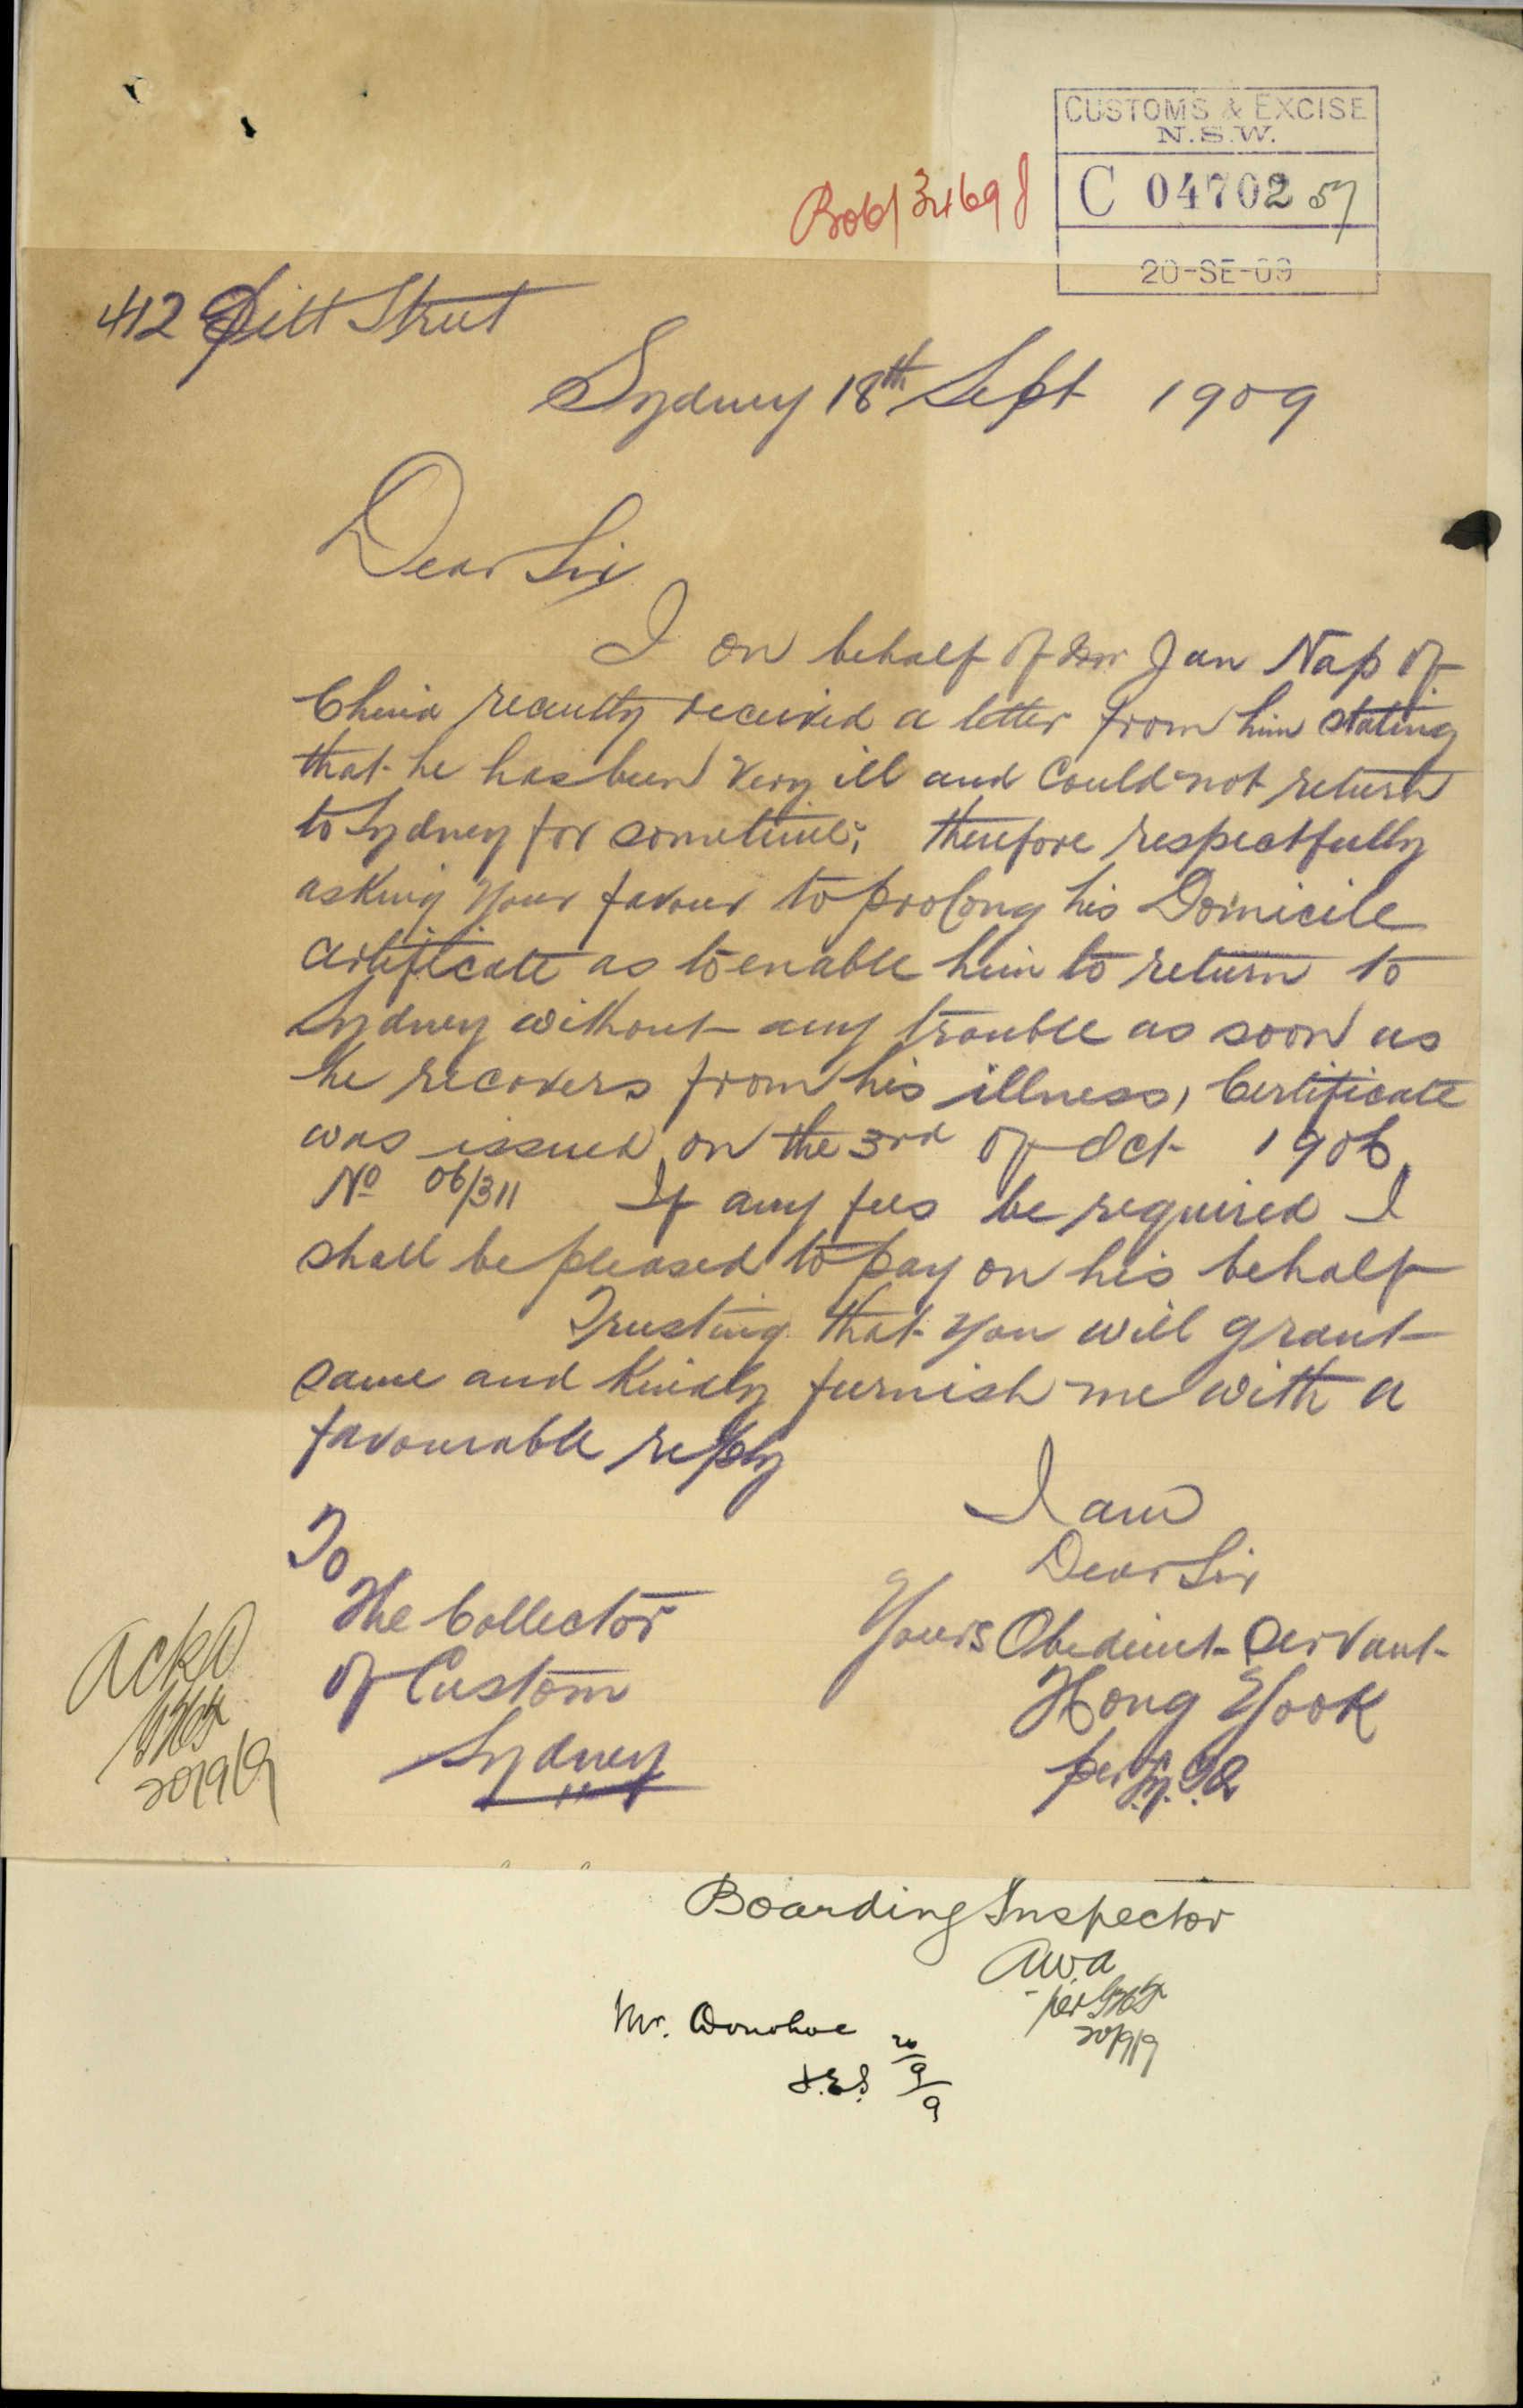 CUSTOMS & EXCISE
N.S.W.
C 04702 57
20-SE-09
B06/3469J
412 Pitt Street
Sydney 18th Sept 1909
Dear Sir
I on behalf of Jan Nap of
China recently received a letter from him stating
that he has been very ill and could not return
to Sydney for sometime; therefore respectfully
asking your favour to prolong his Domicile
Certificate as to enable him to return to
Sydney without any trouble as soon as
he recovers from his illness, Certificate
was issued on the 3rd of Oct 1906
No 06/311 If any fees be required I
shall be pleased to pay on his behalf
Trusting that you will grant
same and kindly furnish me with a
favourable reply
I am
Dear Sir
Yours Obedient Servant
Hong Yook
per
To
The Collector
of Custom
Sydney
Ackd
20/9/9
Boarding Inspector
AWA
per
20/9/9
Mr. Donohoe
20/9/9